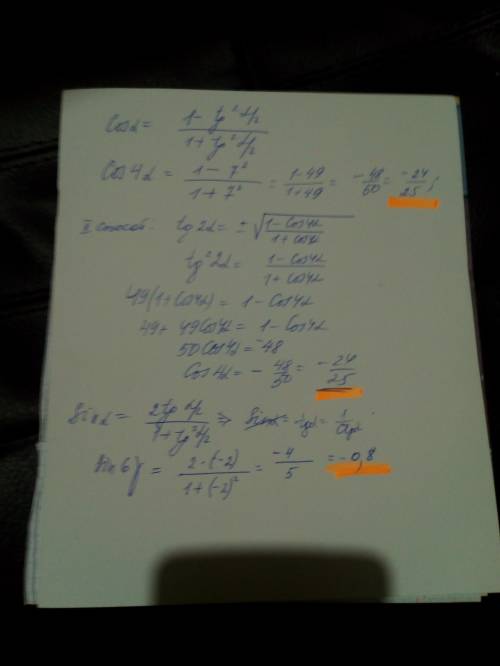 Cosα = (1 - tg² α/2) / (1 + tg² α/2)
Cos4α = (1 - 7²) / (1 + 7²) = (1-49) / (1+49) = -48/50 = -24/25;
II способ: tg2α = ± √((1-Cos4α) / (1+Cos4α))
tg²2α = (1-Cos4α) / (1+Cos4α)
49(1+Cos4α) = 1-Cos4α
49+ 49Cos4α = 1-Cos4α
50Cos4α = -48
Cos4α = - 48/50 = -24/25
Sinα = (2tg α/2) / (1+tg² α/2) ⇒
Sin6γ = (2·(-2)) / (1+(-2)²) = -4/5 = -0,8